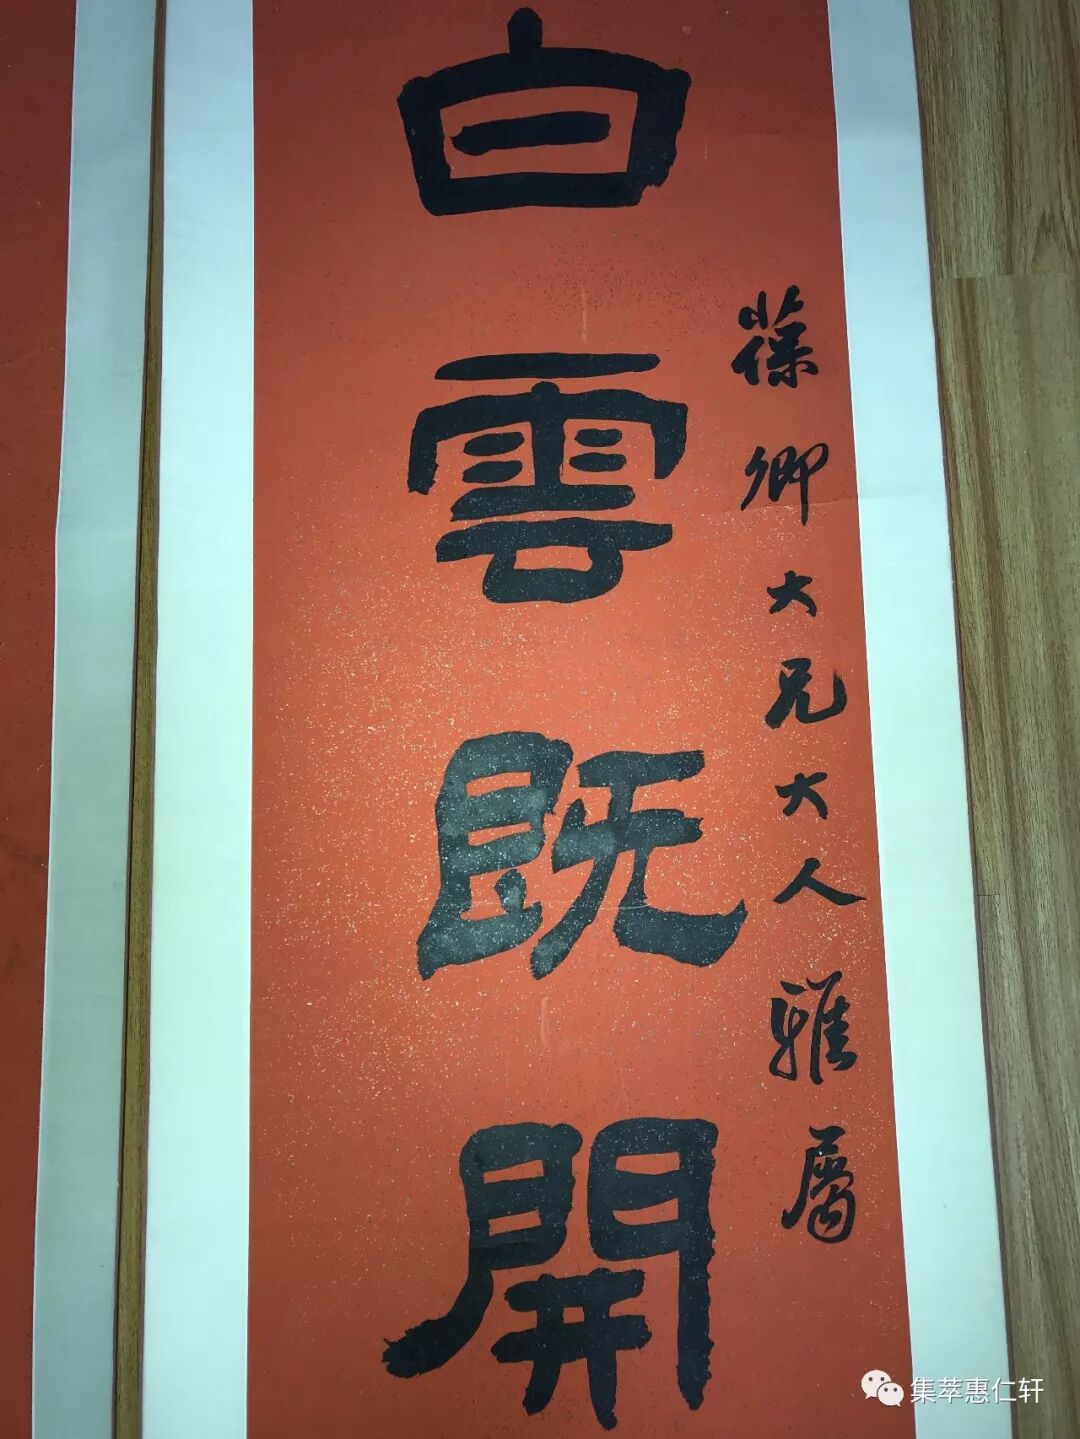 葆卿大兄大人雅屬
白雲既開
集萃惠仁轩